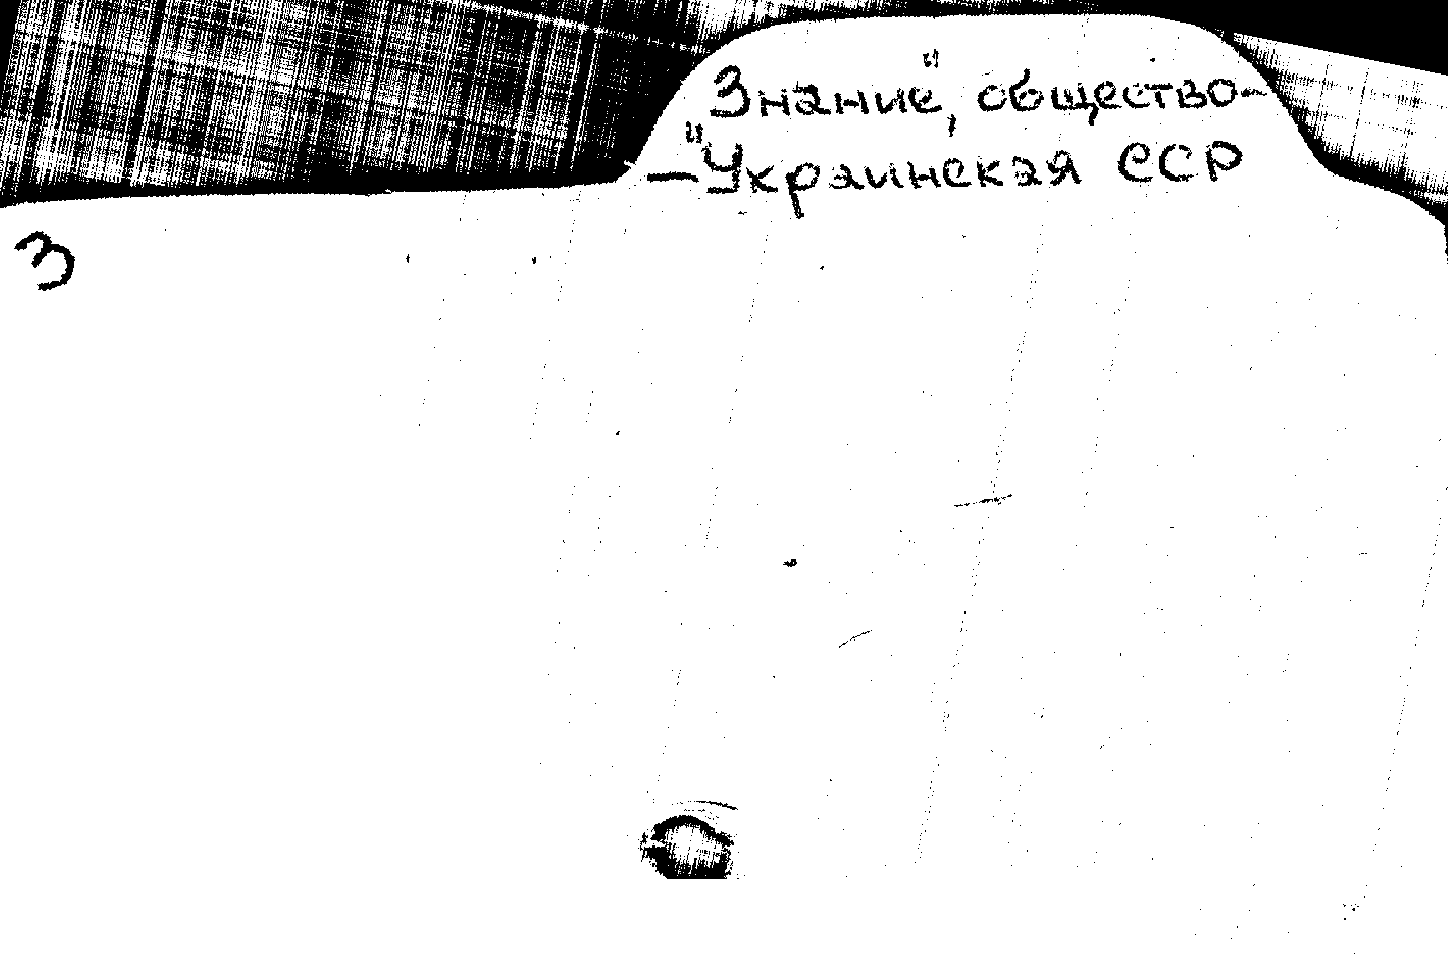 Знание", общество-
-"Украинская ССР
З